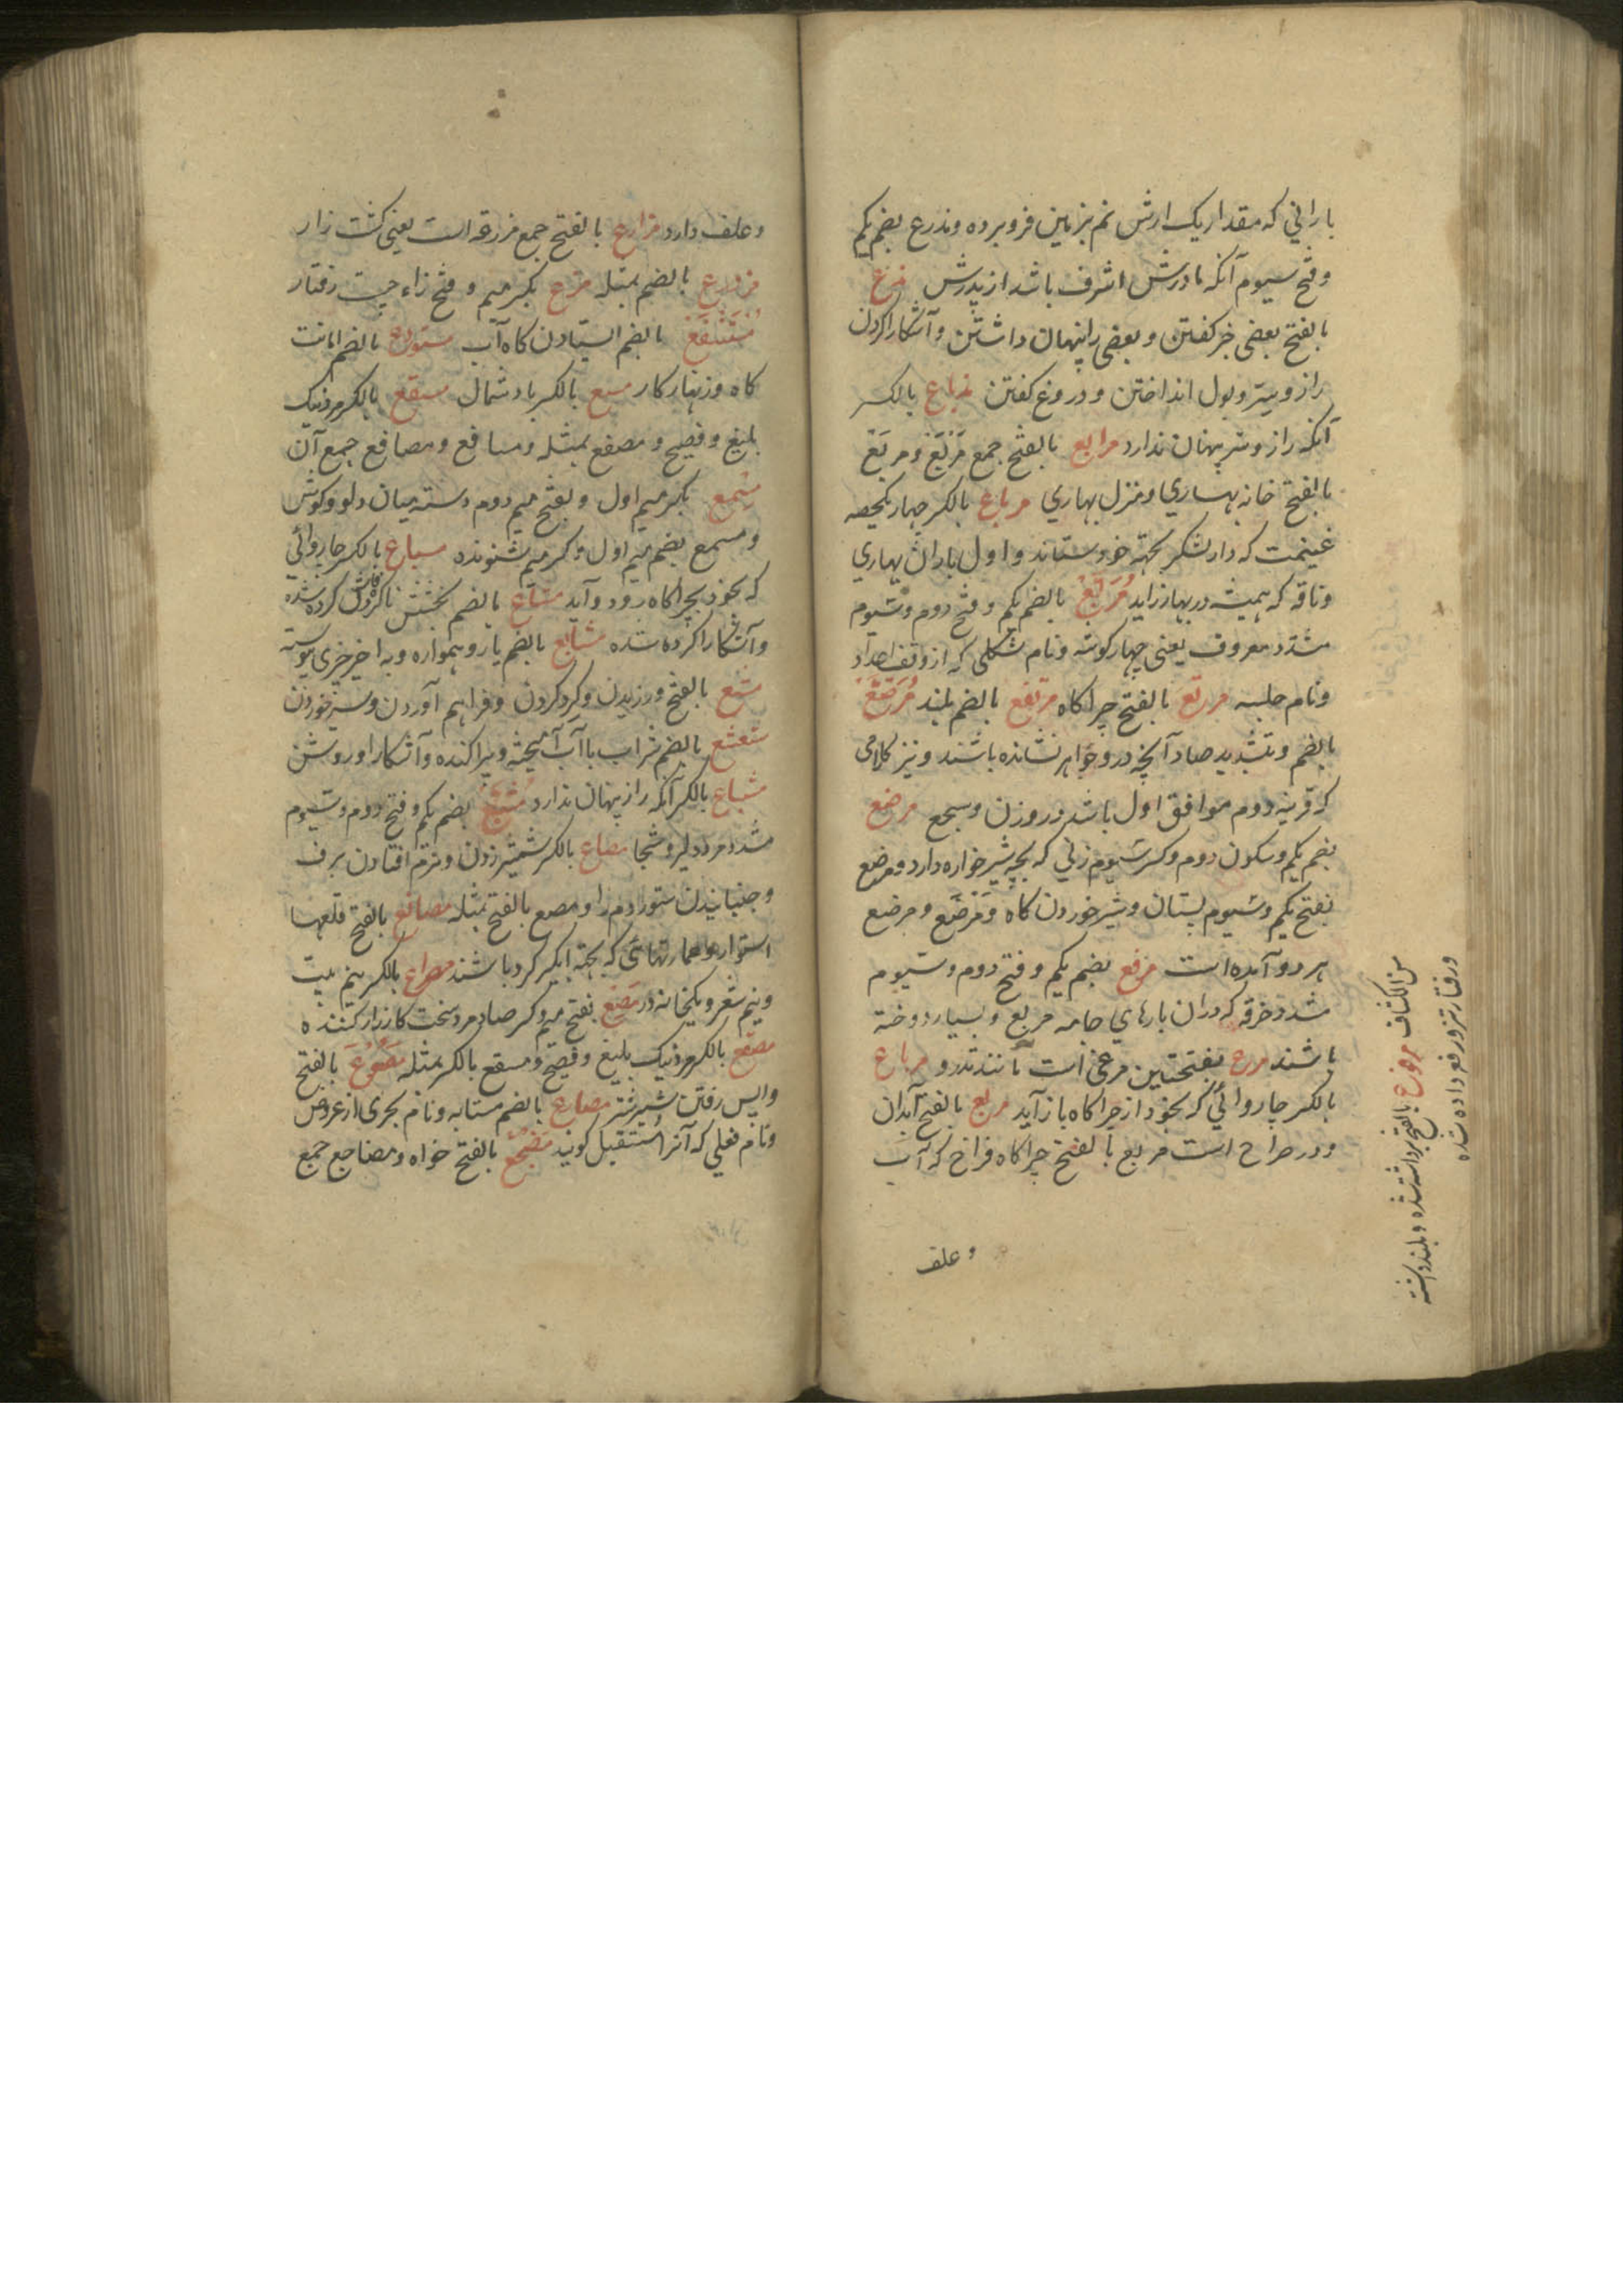 بارانی که مقدار یک ارش نم بزمین فرو برده و مذرع بضم یکم
و فتح سیوم آنکه مادرش اشرف باشد از پدرش مذع
بالفتح بعضی خبر کفتن و بعضی را پنهان داشتن و آشکارا کردن
راز و سر و بول انداختن و دروغ کفتن مذاع بالکسر
آنکه راز و سر پنهان ندارد مرابع بالفتح جمع مَرْبَعْ و مربع
بالفتح خانه بهاری و منزل بهاری مرباع بالکسر چهار یکحصه
غنیمت که دار لشکر بجهته خود ستاند و اول باران بهاری
و ناقه که همیشه در بهار زاید مُرَبَّعْ بالضم یکم و فتح دوم و سیوم
مشدد معروف یعنی چهار کوشه و نام شکلی که از وفق اعداد
و نام جلسه مرتع بالفتح چراکاه مرتفع بالضم بلند مُرَصَّعْ
بالضم و بتشدید صاد آنچه درو جواهر نشانده باشند و نیز کلامی
که قرینه دوم موافق اول باشد در وزن و سجع مرضع
بضم یکم و سکون دوم و کسر سیوم زنی که بچه شیر خواره دارد و مرضع
بفتح یکم و سیوم پستان و شیر خوردن کاه و مَرْضَع و مرضع
هر دو آمده است مرقع بضم یکم و فتح دوم و سیوم
مشدد خرقه که دران بارهای جامه مربع و بسیار دوخته
باشند مرع بفتحتین مرغی است مانند تدرو مرباع
بالکسر چاروائی که بخود از چراکاه باز آید مربع بالفتح آبدان
و در صراح است مربع بالفتح چراکاه فراخ که آب
و علف
من الکشاف مرفوع بالفتح برداشته شده و بلند داشته
و رفتار تیز و رفع داده شده
و علف دارد مزارع بالفتح جمع مزرعه است یعنی کشت زار
بالضم بمثله مزع بکسر میم و فتح زاء رفتار
مُسْتَنْقَعْ بالضم ایستادن کاه آب مستودع بالضم امانت
کاه و زنهار کار مسع بالکسر باد شمال مسقع بالکسر مرد نیک
بلیغ و فصیح و مصقع بمثله و مساقع و مصاقع جمع آن
مسمع بکسر میم اول و بفتح میم دوم دسته میان دلو و کوش
و مسمع بضم میم اول و کسر میم شنونده مسیاع بالکسر چاروائی
که بخود بچراکاه رود و آید مشاع بالضم بخشش ناکرده فاش کرده شده
و آشکارا کرده شده مشایع بالضم یار و همواره و با خیر چیزی پیوسته
مشع بالفتح ورزیدن و کرد کردن و فراهم آوردن و سیر خوردن
مشعشع بالضم شراب با آب آمیخته و پراکنده و آشکارا و روشن
مشیاع بالکسر آنکه راز پنهان ندارد مُشَیَّعْ بضم یکم و فتح دوم و سیوم
مشدد مرد دلیر و شجاع مصاع بالکسر شمشیر زدن و نرم افتادن برف
و جنبانیدن ستور دم را و مصع بالفتح بمثله مصانع بالفتح قلعها
استوار و عمارتهائی که بجهته آبگیر کرد باشند مصراع بالکسر نیم بیت
و نیم شعر و یکخانه در مَصَعْ بفتح میم و کسر صاد مرد سخت کارزار کننده
مصقع بالکسر مرد نیک بلیغ و فصیح و مسقع بالکسر بمثله بالفتح
واپس رفتن شیر شتر مضارع بالضم مشابه و نام بحری از عروض
و نام فعلی که آنرا مستقبل کویند مَضْجَعْ بالفتح خواه و مضاجع جمع